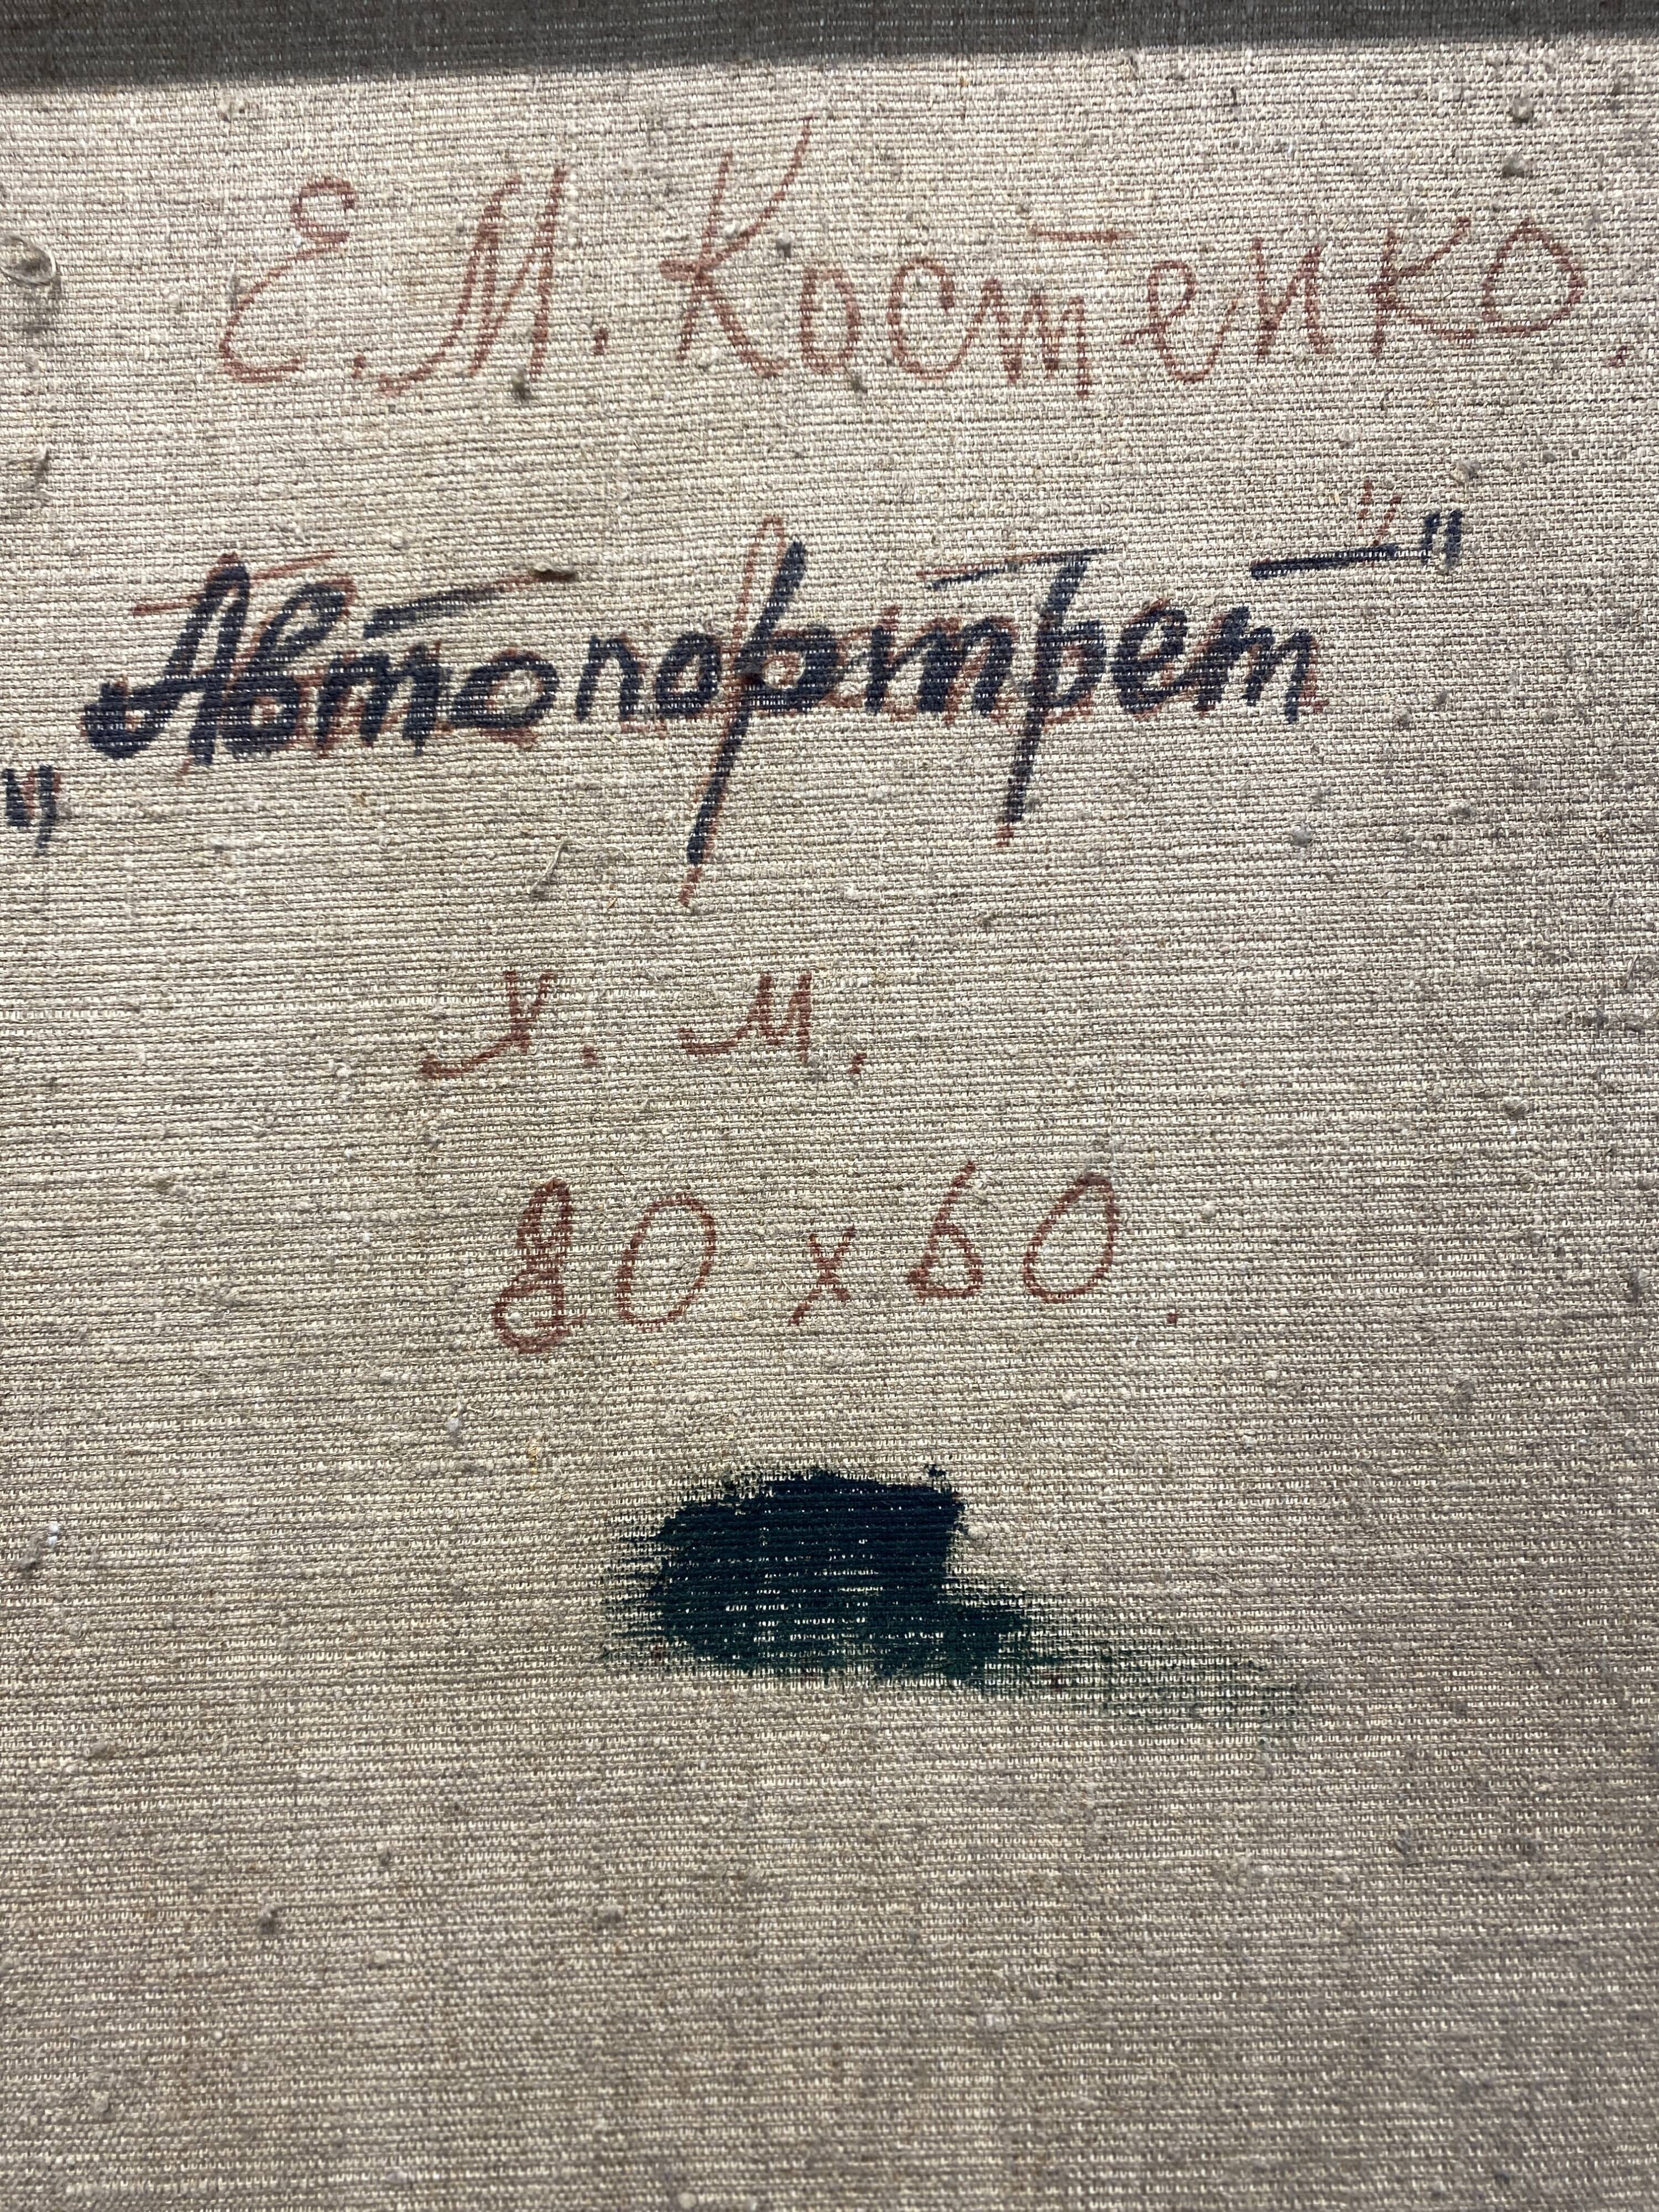 Е. М. Костенко.
„Автопортрет"
х. м.
80 х 60.